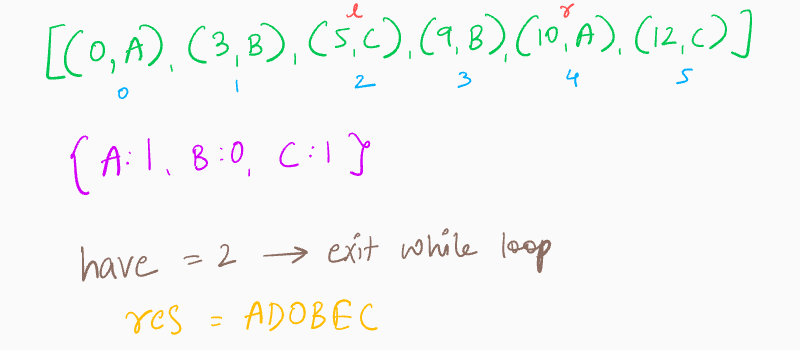 l r
[(0,A), (3,B), (5,C), (9,B), (10,A), (12,C)]
0 1 2 3 4 5
{A:1, B:0, C:1}
have = 2 → exit while loop
res = ADOBEC